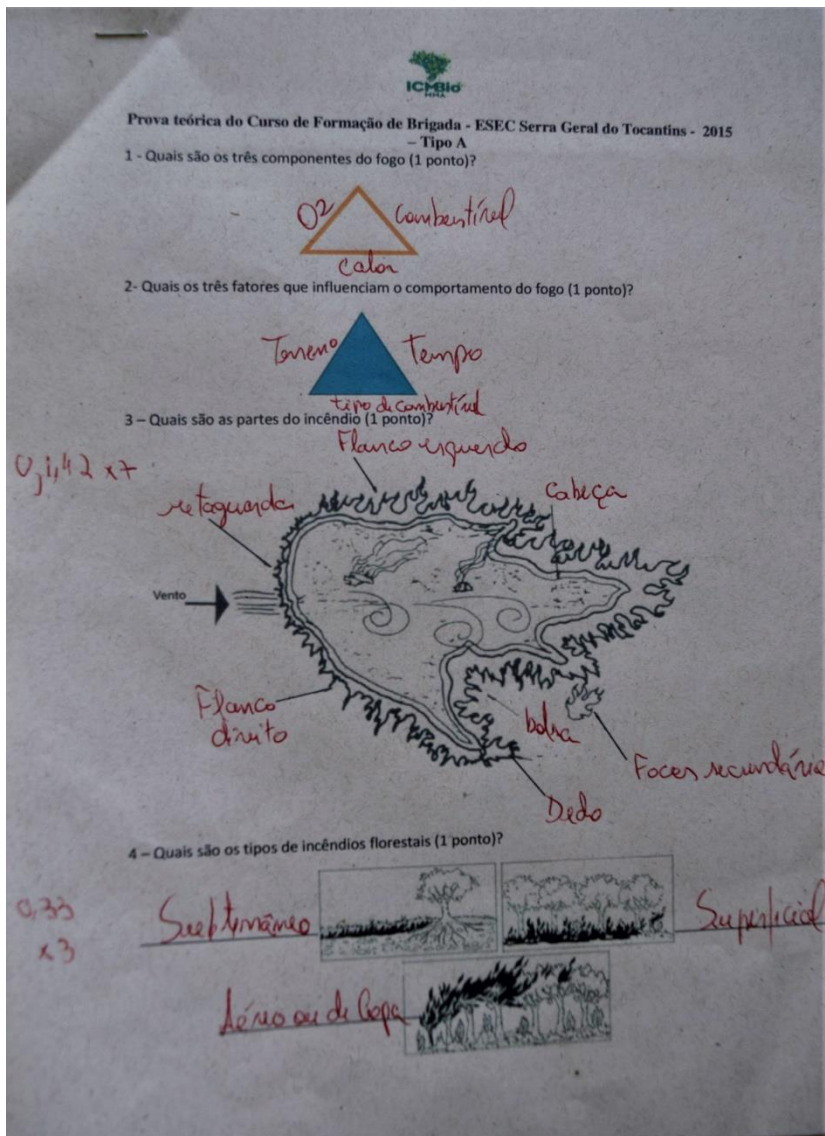 ICMBio
MMA
Prova teórica do Curso de Formação de Brigada - ESEC Serra Geral do Tocantins - 2015
– Tipo A
1 - Quais são os três componentes do fogo (1 ponto)?
O2 Combustível
Calor
2- Quais os três fatores que influenciam o comportamento do fogo (1 ponto)?
Terreno Tempo
tipo de combustível
3 – Quais são as partes do incêndio (1 ponto)?
Flanco esquerdo
0,1,42 x7
retaguarda
Cabeça
Vento
Flanco
direito
bolsa
Foces secundária
Dedo
4 – Quais são os tipos de incêndios florestais (1 ponto)?
0,33
x3
Subterrâneo
Superficial
Aéreo ou de Copa